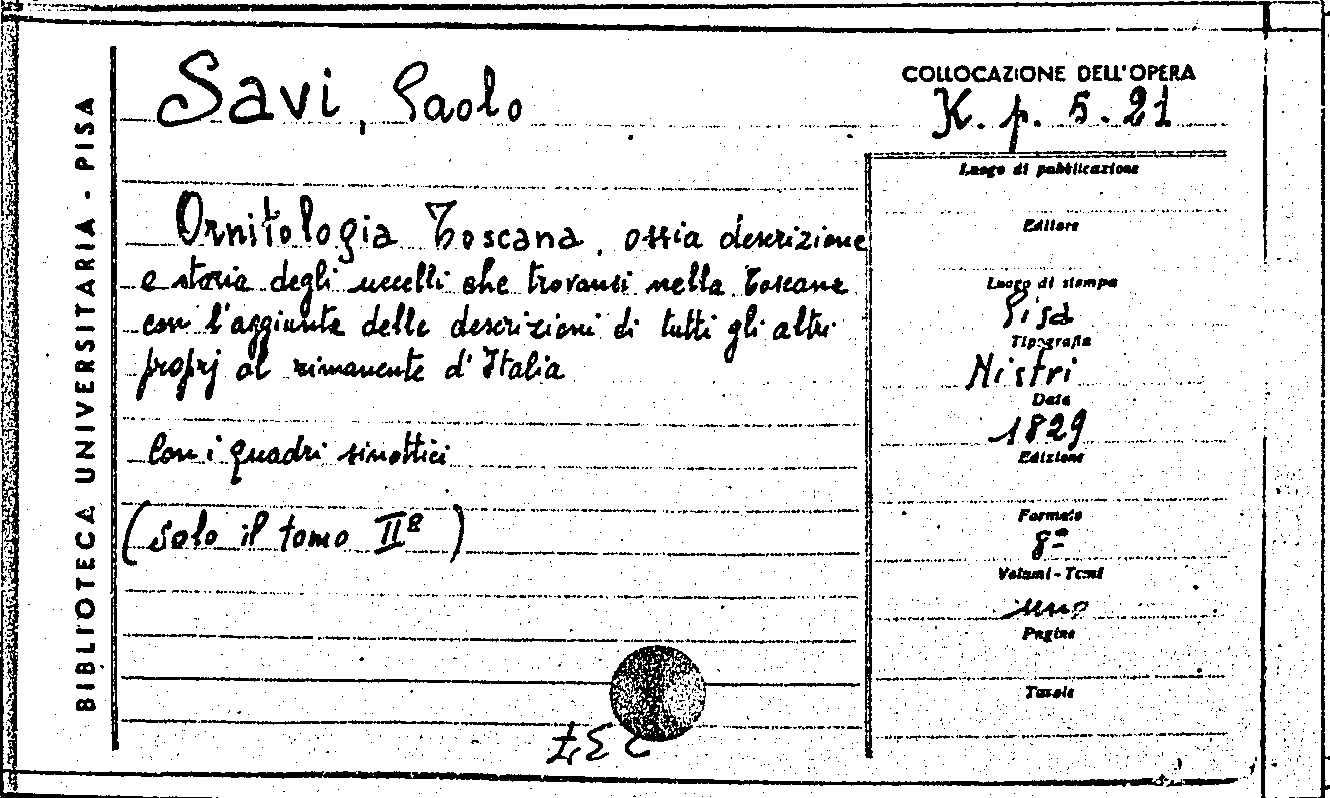 BIBLIOTECA UNIVERSITARIA - PISA
Savi, Paolo
COLLOCAZIONE DELL'OPERA
K. p. 5. 21
Ornitologia Toscana, ossia descrizione
e storia degli uccelli che trovansi nella Toscana
con l'aggiunta delle descrizioni di tutti gli altri
proprj al rimanente d'Italia
Con i quadri sinottici
(solo il tomo IIº)
Luogo di pubblicazione
Editore
Luogo di stampa
Pisa
Tipografia
Nistri
Data
1829
Edizione
Formato
8º
Volumi - Tomi
uno
Pagine
Tavole